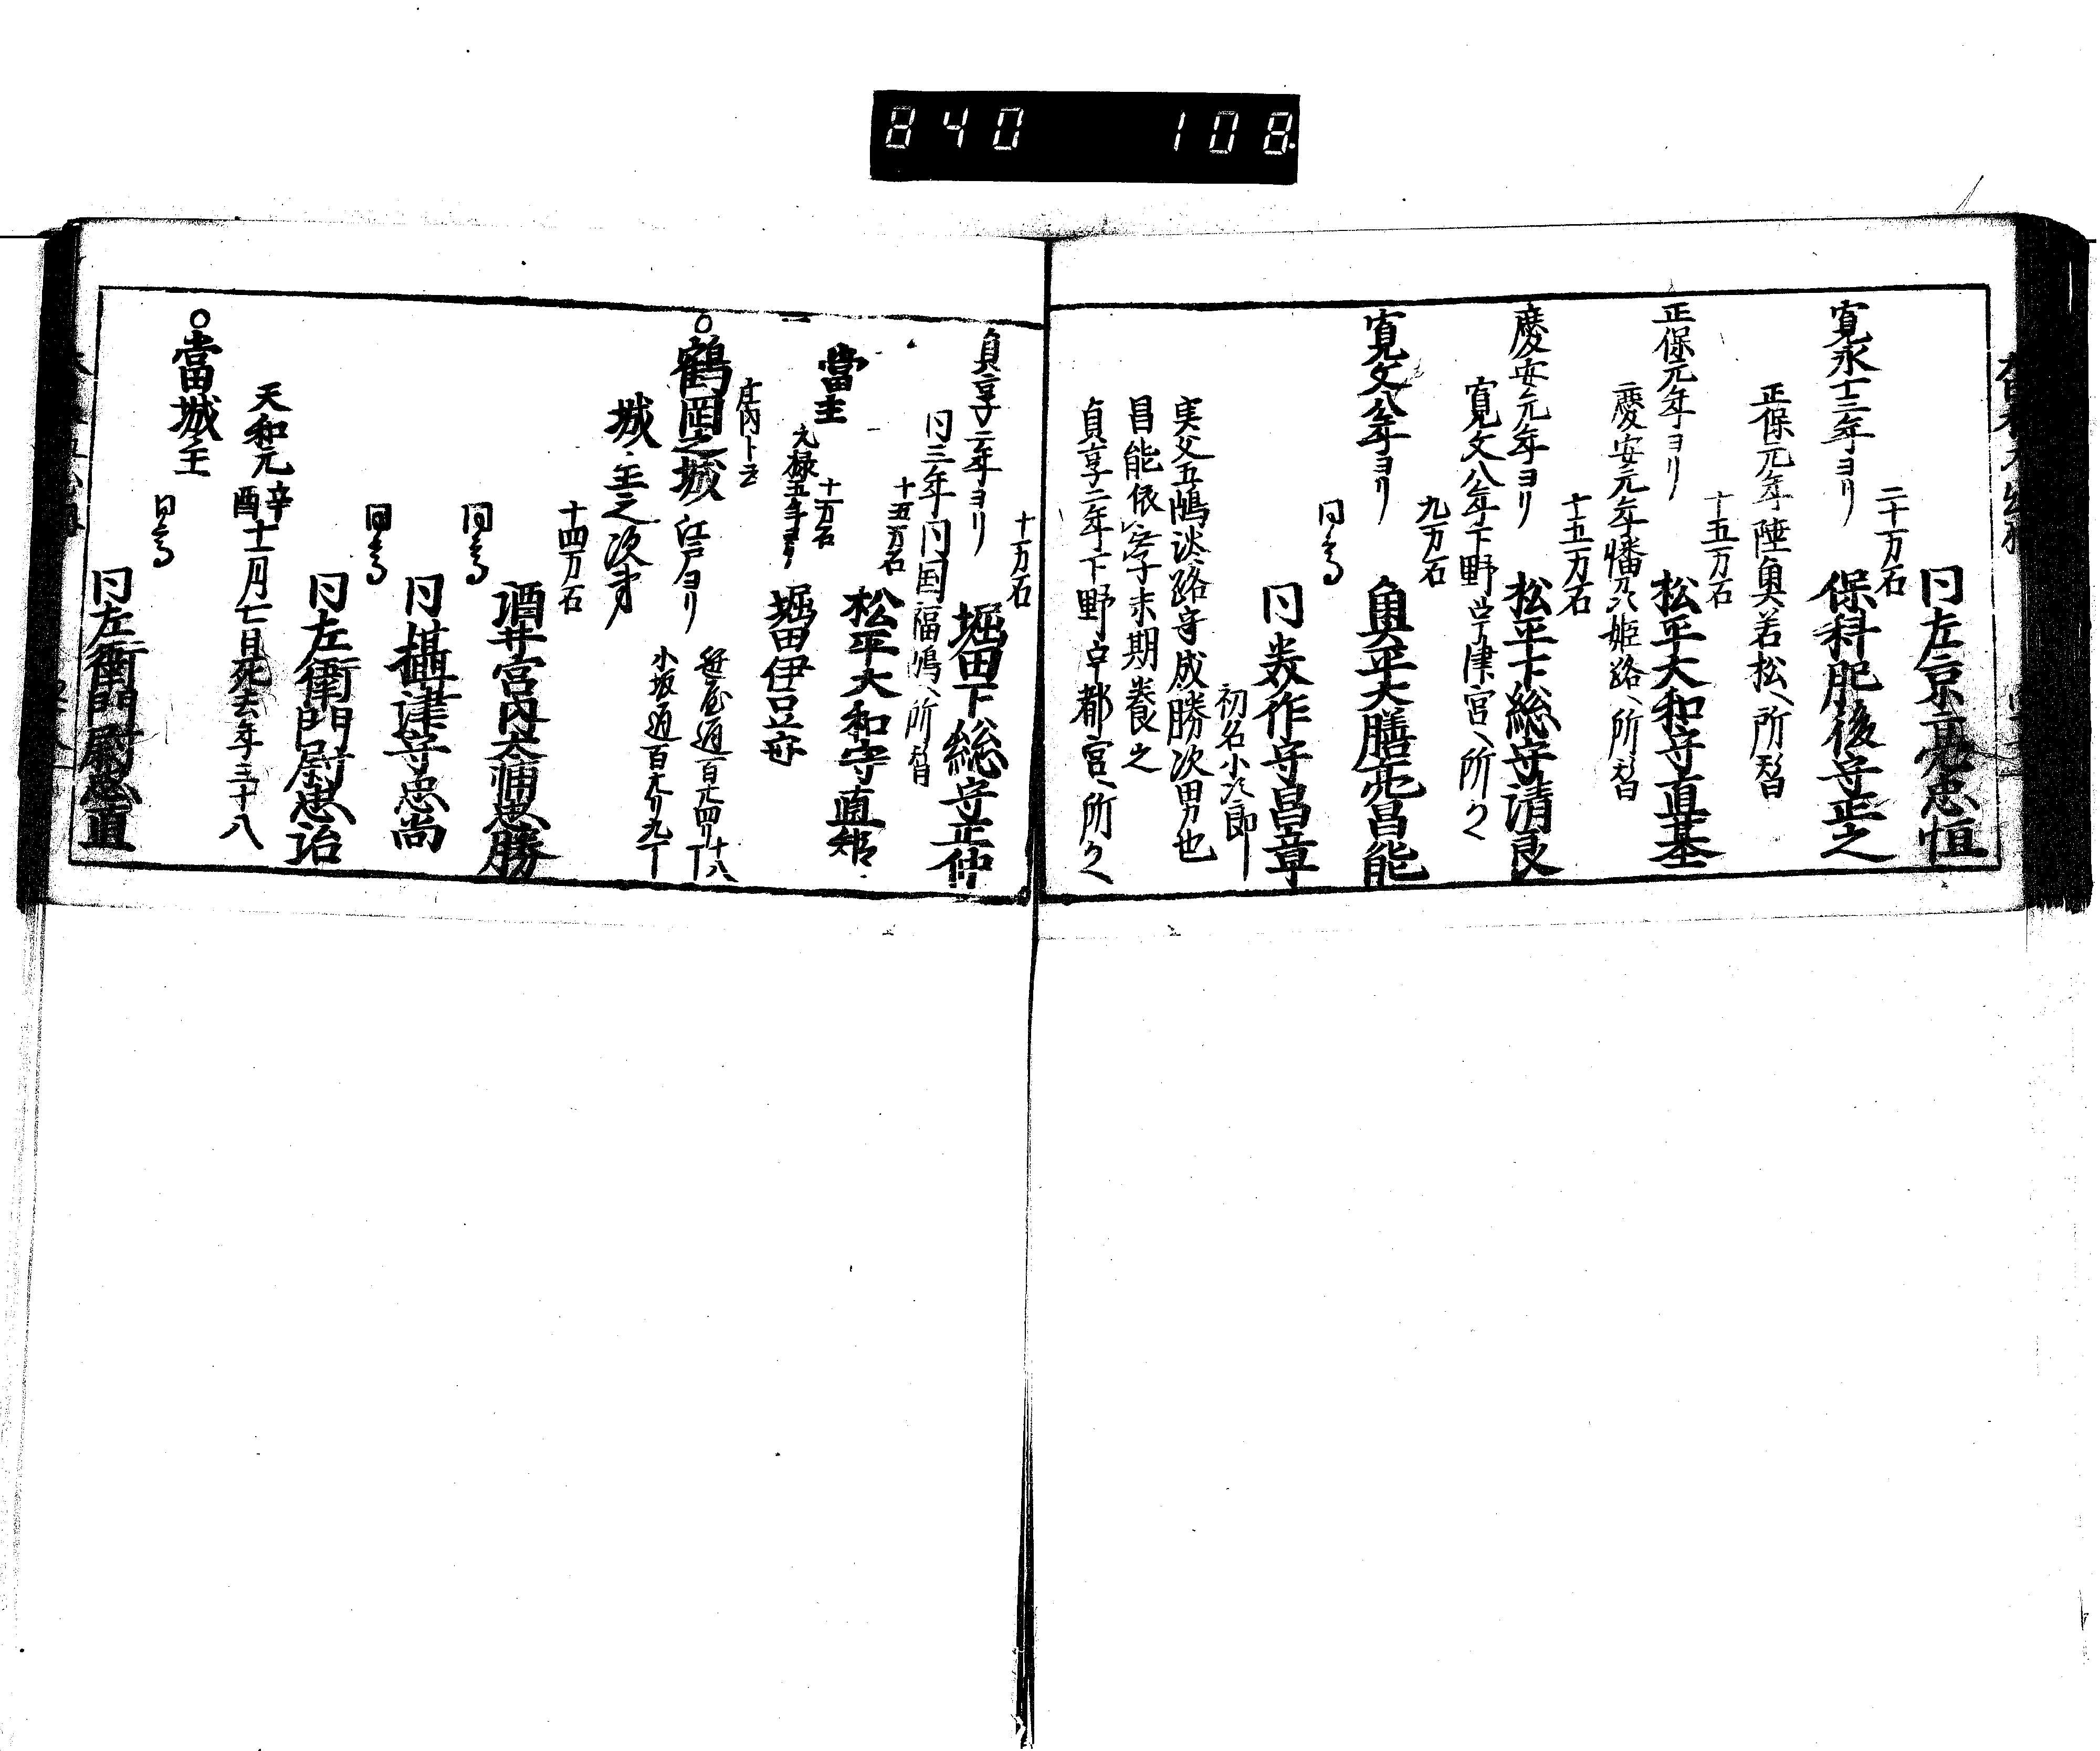 840 108
同左京亮忠恒
二十万石
寛永十三年ヨリ 保科肥後守正之
正保元年陸奥若松ヘ所替
十五万石
正保元年ヨリ 松平大和守直基
慶安元年幡乃姫路ヘ所替
十五万石
慶安元年ヨリ 松平下総守清良
寛文八年下野宇津宮ヘ所久
九万石
寛文八年ヨリ 奥平大膳亮昌能
同高
同美作守昌章
初名小次郎
実父五嶋淡路守成勝次男也
昌能依無子末期養之
貞享二年下野宇都宮ヘ所久
十万石
貞享二年ヨリ 堀田下総守正仲
同三年同国福嶋ヘ所替
十五万石
松平大和守直矩
十万石
當主 元禄五年ヨリ 堀田伊豆守
庄内ト云
○鶴岡之城 江戸ヨリ
笹谷通百廿四リ十八丁
小坂通百廿八リ九丁
城主之次第
十四万石
酒井宮内太輔忠勝
同高
同攝津守忠尚
同高
同左衛門尉忠治
天和元辛酉十一月七日死去年三十八
○當城主
同高
同左衛門尉忠直